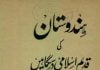 ہندوستان
کی
قدیم اسلامی درسگاہیں